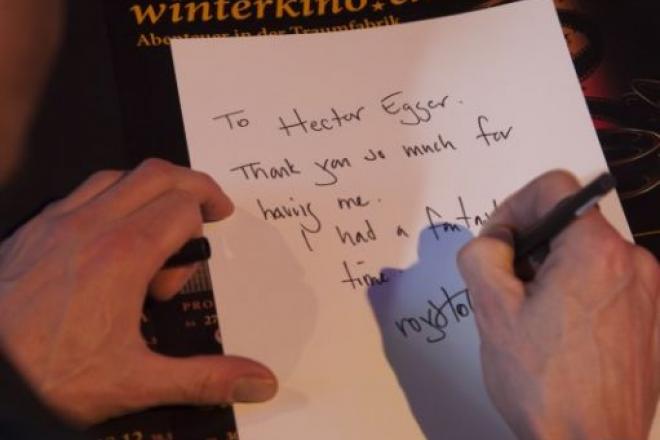 winterkino.c
Abenteuer in der Traumfabrik
To Hector Egger.
Thank you so much for
having me.
I had a fantas
time.
roysto
PRO
27
12